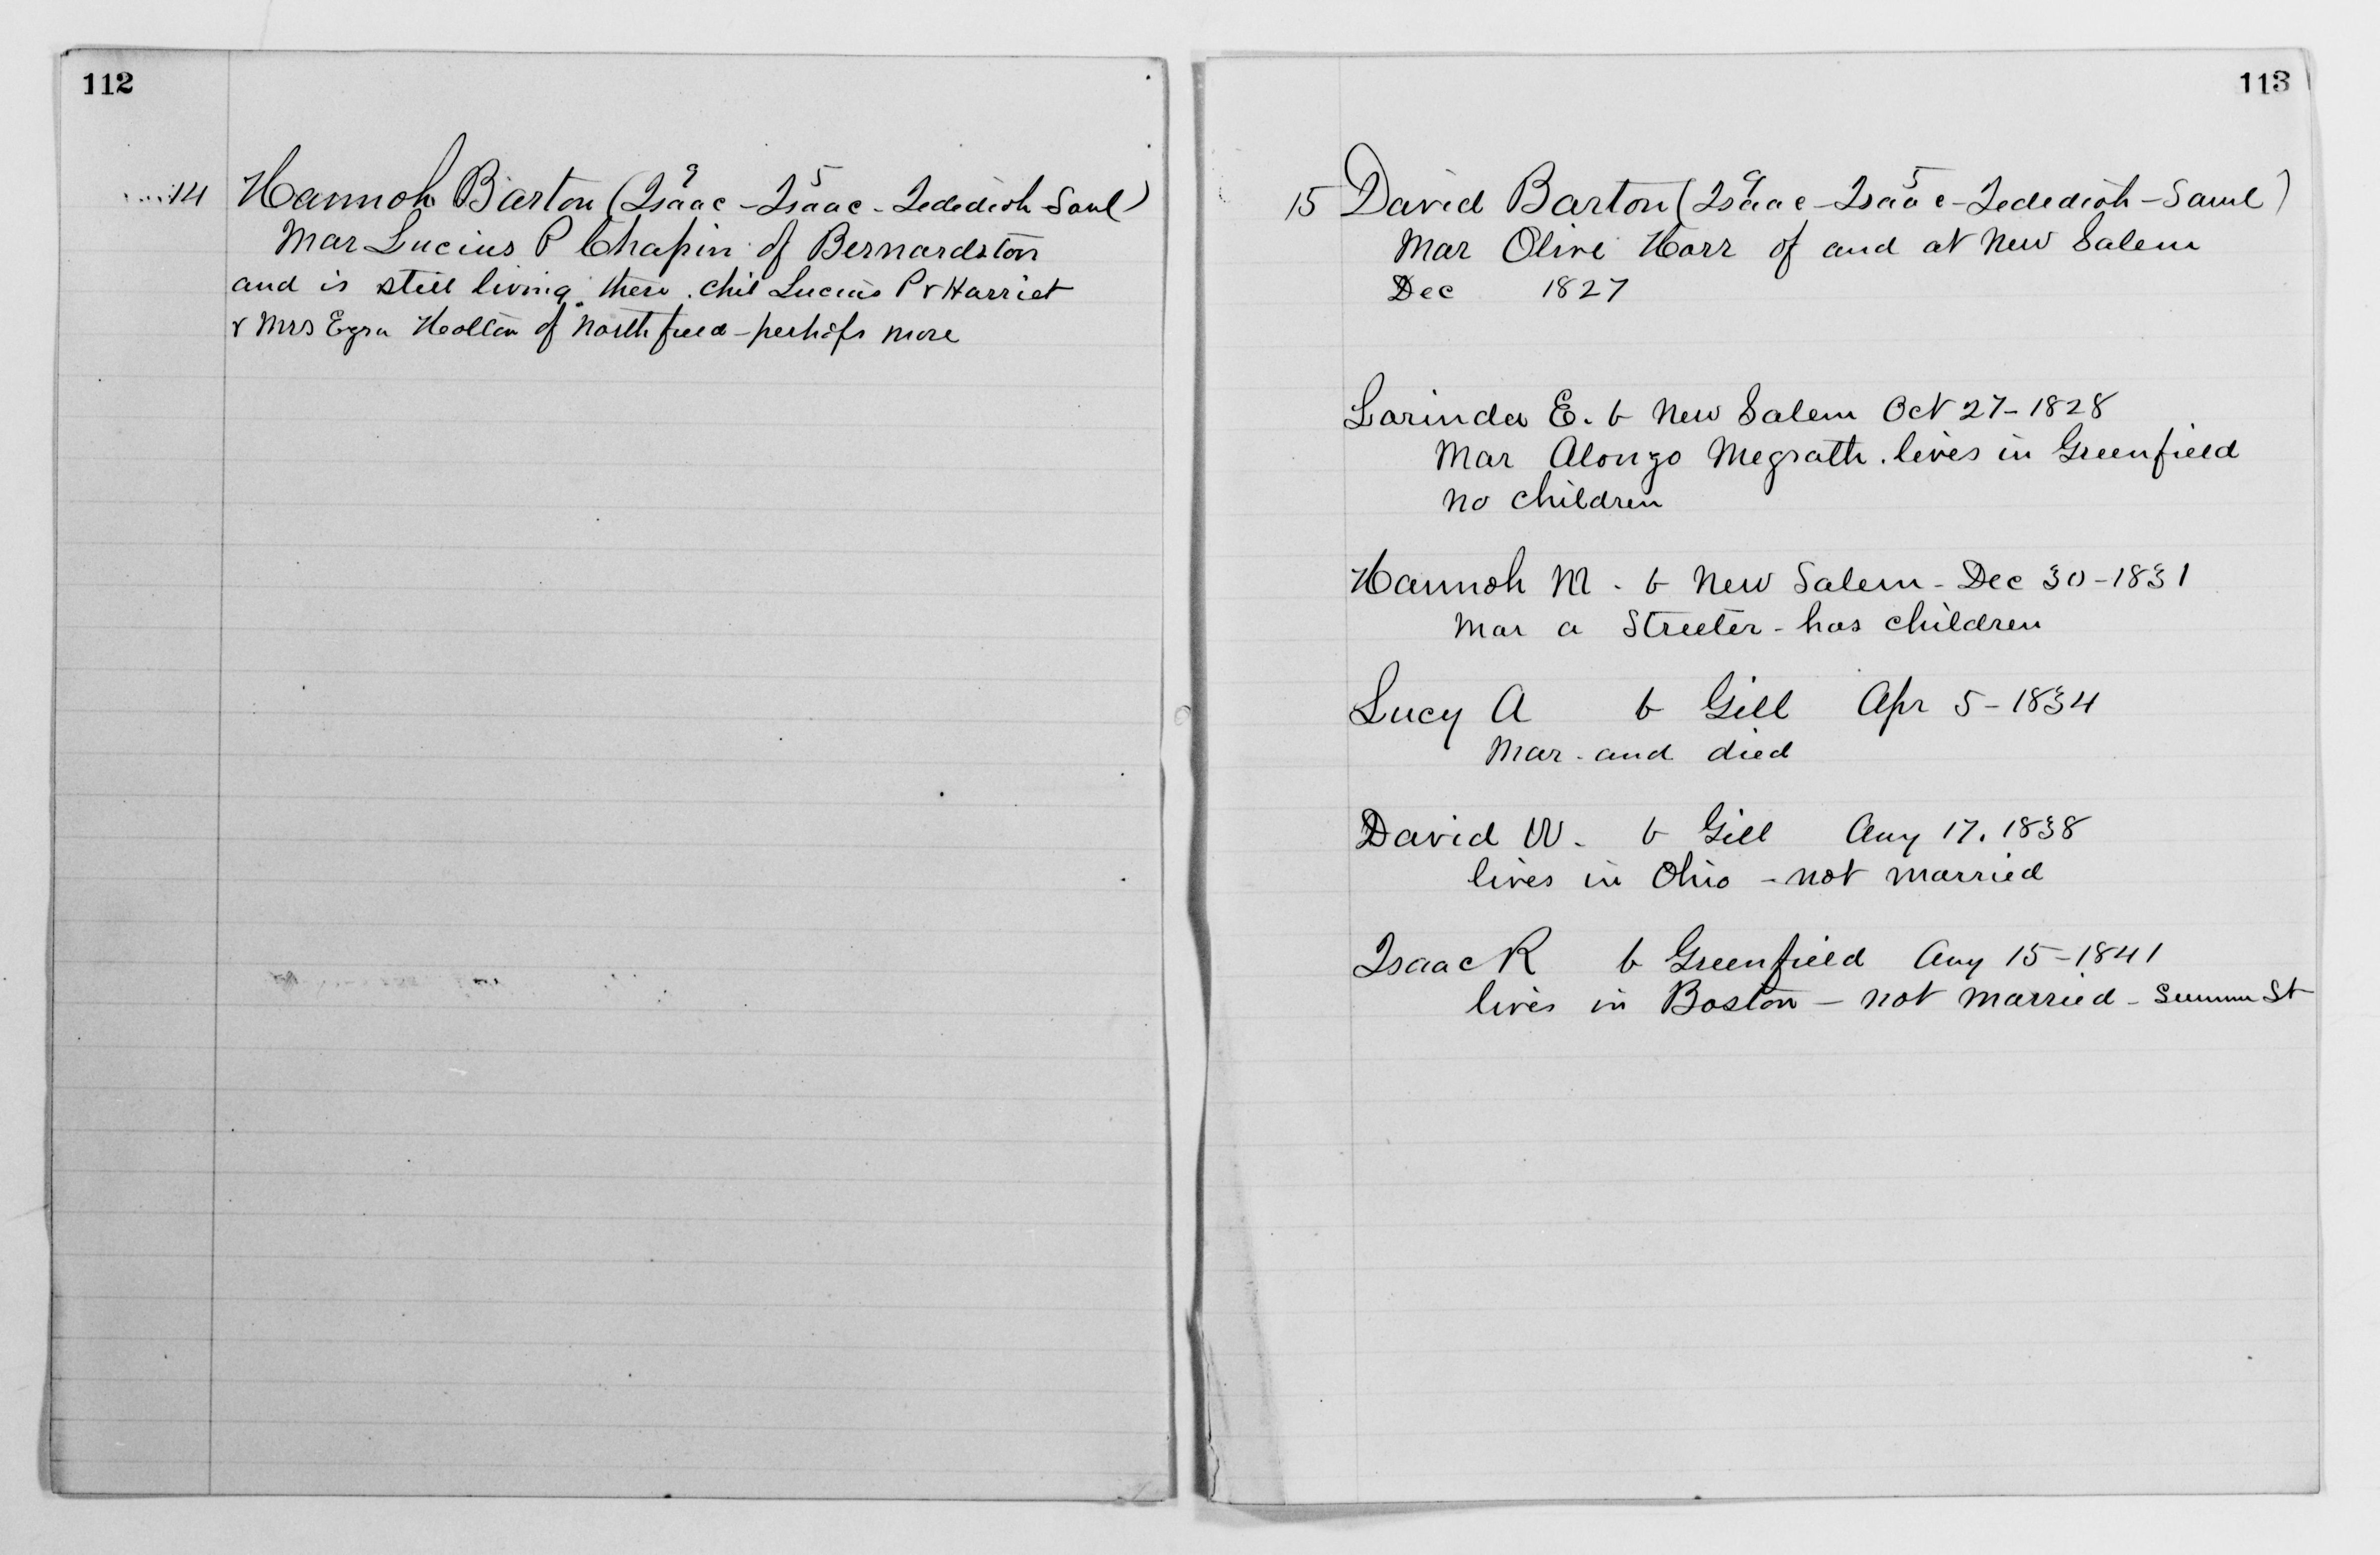 112
14 Hannah Barton (Isaac9 - Isaac5 - Jedediah - Saml)
Mar Lucius P Chapin of Bernardston
and is still living there. chil Lucius P & Harriet
& Mrs Ezra Holton of Northfield - perhaps more
113
15 David Barton (Isaac9 - Isaac5 - Jedediah - Saml)
Mar Olive Horr of and at New Salem
Dec 1827
Lorinda E. b New Salem Oct 27 - 1828
Mar Alonzo Megrath. lives in Greenfield
no children
Hannah M. b New Salem - Dec 30 - 1831
Mar a Streeter - has children
Lucy A b Gill Apr 5 - 1834
Mar. and died
David W. b Gill Aug 17. 1838
lives in Ohio - not married
Isaac R b Greenfield Aug 15 - 1841
lives in Boston - not married - Summer St